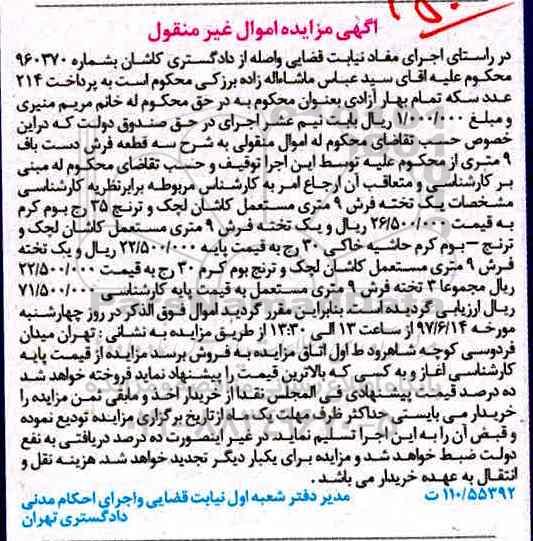 آگهی مزایده اموال غیر منقول
در راستای اجرای مفاد نیابت قضایی واصله از دادگستری کاشان بشماره ۹۶۰۳۷۰
محکوم علیه آقای سید عباس ماشااله زاده برزکی محکوم است به پرداخت ۲۱۴
عدد سکه تمام بهار آزادی بعنوان محکوم به در حق محکوم له خانم مریم منیری
و مبلغ ۱/۰۰۰/۰۰۰ ریال بابت نیم عشر اجرای در حق صندوق دولت که دراین
خصوص حسب تقاضای محکوم له اموال منقولی به شرح سه قطعه فرش دست باف
۹ متری از محکوم علیه توسط این اجرا توقیف و حسب تقاضای محکوم له مبنی
بر کارشناسی و متعاقب آن ارجاع امر به کارشناس مربوطه برابرنظریه کارشناسی
مشخصات یک تخته فرش ۹ متری مستعمل کاشان لچک و ترنج ۳۵ رج بوم کرم
به قیمت ۲۶/۵۰۰/۰۰۰ ریال و یک تخته فرش ۹ متری مستعمل کاشان لچک و
ترنج – بوم کرم حاشیه خاکی ۳۰ رج به قیمت پایه ۲۲/۵۰۰/۰۰۰ ریال و یک تخته
فرش ۹ متری مستعمل کاشان لچک و ترنج بوم کرم ۳۰ رج به قیمت ۲۲/۵۰۰/۰۰۰
ریال مجموعا ۳ تخته فرش ۹ متری مستعمل به قیمت پایه کارشناسی ۷۱/۵۰۰/۰۰۰
ریال ارزیابی گردیده است. بنابراین مقرر گردید اموال فوق الذکر در روز چهارشنبه
مورخه ۹۷/۶/۱۴ از ساعت ۱۳ الی ۱۳:۳۰ از طریق مزایده به نشانی : تهران میدان
فردوسی کوچه شاهرود ط اول اتاق مزایده به فروش برسد مزایده از قیمت پایه
کارشناسی آغاز و به کسی که بالاترین قیمت را پیشنهاد نماید فروخته خواهد شد
ده درصد قیمت پیشنهادی فی المجلس نقدا از خریدار اخذ و مابقی ثمن مزایده را
خریدار می بایستی حداکثر ظرف مهلت یک ماه از تاریخ برگزاری مزایده تودیع نموده
و قبض آن را به این اجرا تسلیم نماید. در غیر اینصورت ده درصد دریافتی به نفع
دولت ضبط خواهد شد و مزایده برای یکبار دیگر تجدید خواهد شد. هزینه نقل و
انتقال به عهده خریدار می باشد .
۱۱۰/۵۵۳۹۲ ت
مدیر دفتر شعبه اول نیابت قضایی واجرای احکام مدنی
دادگستری تهران